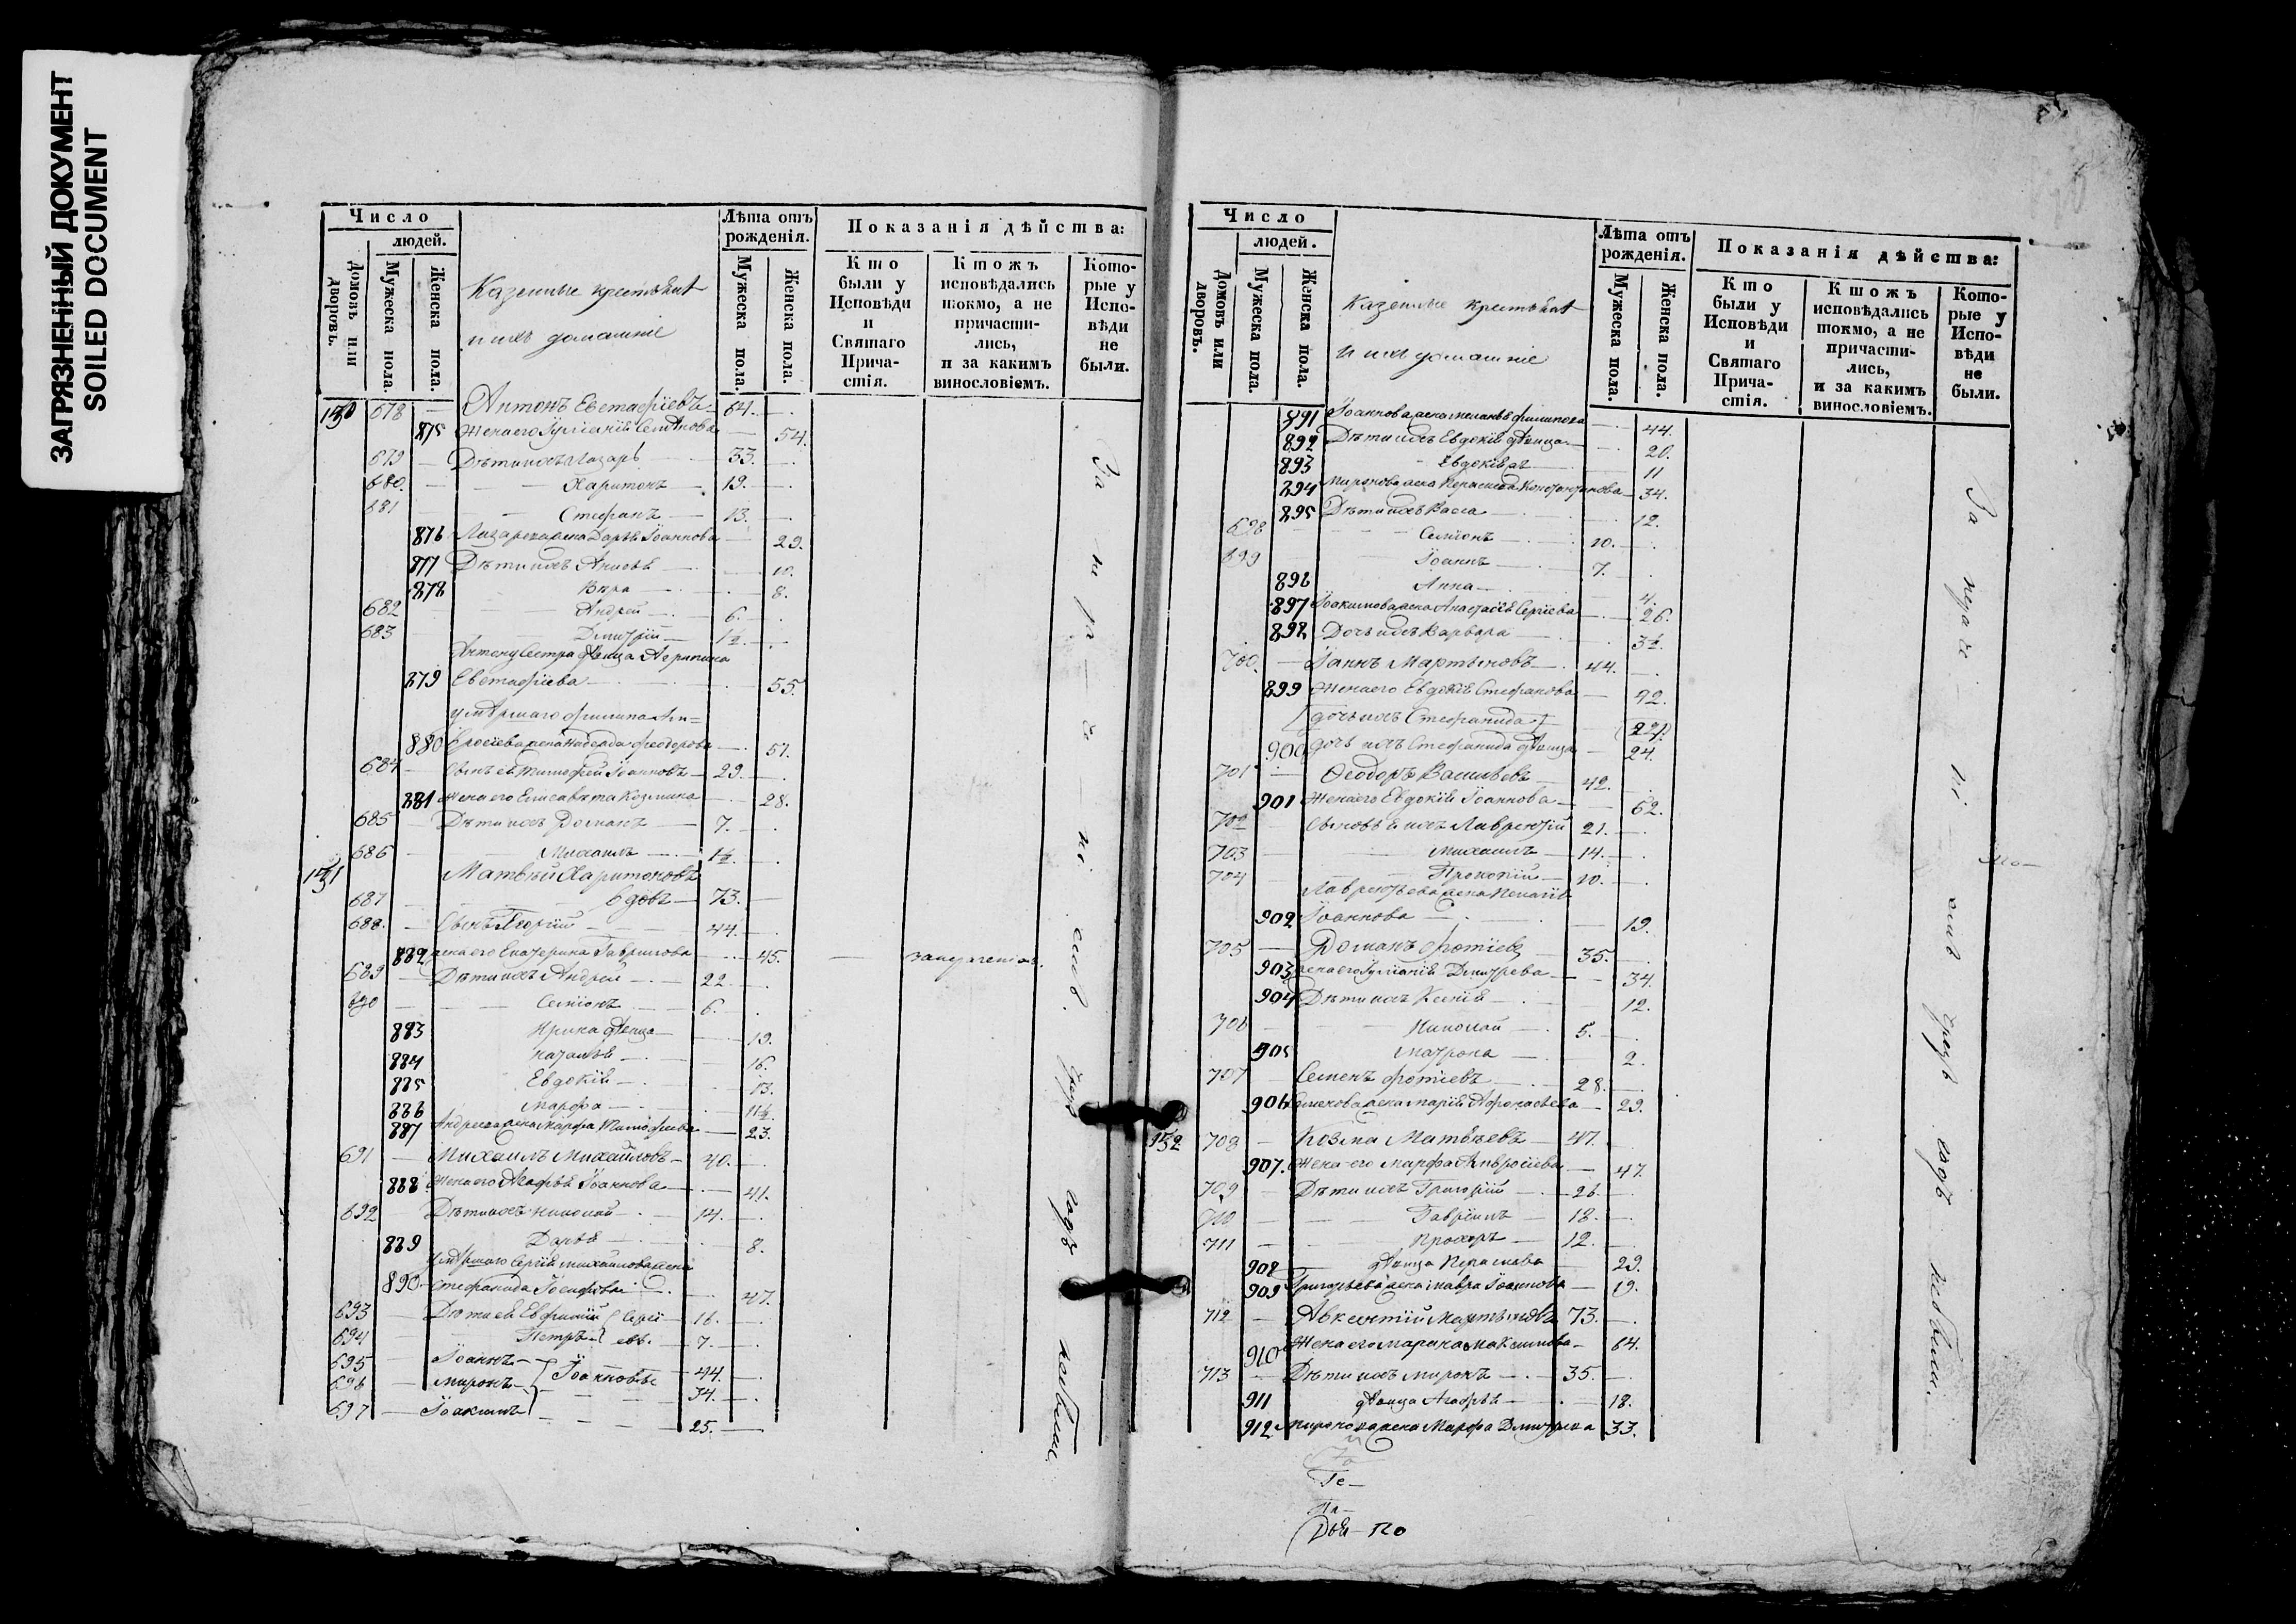 ЗАГРЯЗНЕННЫЙ ДОКУМЕНТ
SOILED DOCUMENT
Число
людей.
Домовъ или дворовъ.
Мужеска пола.
Женска пола.
Казенные крестьяне
и ихъ домашніе
Лѣта отъ рожденія.
Мужеска пола.
Женска пола.
Показанія дѣйства:
Кто были у Исповѣди и Святаго Прича-стія.
Ктожъ исповѣдались токмо, а не причасти-лись, и за какимъ винословіемъ.
Кото-рые у Испо-вѣди не были.
150 678 — Антонъ Евстафіевъ 64.
875 Жена его Іуліанія Семѣнова 54.
679 — Дѣти ихъ Лазарь 33.
680. Харитонъ 19.
681 Стефанъ 13.
876 Лазарева жена Дарья Іоаннова 29.
877 Дѣти ихъ Анисья 10.
878 Вѣра 8.
682 Андрей 6.
683 Димитрій 1½
Антона сестра дѣвица Агрипина
879 Евстафіева 55.
умѣршаго Филипа
880 жена Надежда Феодорова 57.
684 Сынъ ея Тимофей Іоанновъ 29.
881 Жена его Елисавета Козмина 28.
685 Дѣти ихъ Романъ 7.
686 Михаилъ 1½
151 Матвѣй Харитоновъ
687 вдовъ 73.
688. Сынъ Георгій 44.
882 жена его Екатерина Гаврилова 45.
689 Дѣти ихъ Андрей 22.
690 Семіонъ 6.
883 Ирина дѣвица 19.
884 Наталья 16.
885 Евдокія 13.
886 Марфа 11½
887 Андреева жена Марфа Тимофеева 23.
691 Михаилъ Михайловъ 40.
888 Жена его Агафья Іоаннова 41.
692 Дѣти ихъ Николай 14.
889 Дарья 8.
умѣршаго Сергія Михайлова жена
890 Стефанида Іосифова 47.
693 Дѣти ея Евфимій Сергі- 16.
694 Петръ евы. 7.
695 Іоаннъ Іоанновы 44.
696 Миронъ 34.
697 Іоакимъ 25.
за отлучкою
невбытіе
Число
людей.
Домовъ или дворовъ.
Мужеска пола.
Женска пола.
Казенные крестьяне
и ихъ домашніе
Лѣта отъ рожденія.
Мужеска пола.
Женска пола.
Показанія дѣйства:
Кто были у Исповѣди и Святаго Прича-стія.
Ктожъ исповѣдались токмо, а не причасти-лись, и за какимъ винословіемъ.
Кото-рые у Испо-вѣди не были.
891 Іоаннова жена Меланья Филипова 44.
892 Дѣти ихъ Евдокія дѣвица 20.
893 Евдокія 11
894 Миронова жена Параскева Константинова 34.
895 Дѣти ихъ Васса 12.
698 Семіонъ 10.
699 Іоаннъ 7.
896 Анна 4.
897 Іоакимова жена Анастасія Сергіева 26.
898 Дочь ихъ Варвара 3½.
700. Іоаннъ Мартыновъ 44.
899 Жена его Евдокія Стефанова 42.
[дочь ихъ Стефанида]
900 дочь ихъ Стефанида дѣвица 24.
701 Феодоръ Васильевъ 42.
901 Жена его Евдокія Іоаннова 62.
702 Сыновья ихъ Лаврентій 21.
703 Михаилъ 14.
704 Прокопій 10.
Лаврентьева жена Пелагія
902 Іоаннова 19.
705 Романъ Фотіевъ 35.
903 жена его Іуліанія Дмитрева 34.
904 Дѣти ихъ Ксенія 12.
706 Николай 5.
905 Матрона 2.
707 Семенъ Фотіевъ 28.
906 Семенова жена Марія Афонасьева 29.
152 708 Козма Матвѣевъ 47.
907. Жена его Марфа Амвросіева 47.
709 Дѣти ихъ Григорій 26.
710 Гавріилъ 18.
711 Прохоръ 12.
908 дѣвица Параскева 29.
909 Григорьева жена Мавра Іоаннова 19.
712 Авксентій Мартыновъ 73.
910 Жена его Марина Максимова 64.
713 Дѣти ихъ Миронъ 35.
911 дѣвица Агафья 18.
912 Миронова жена Марфа Дмитрева 33.